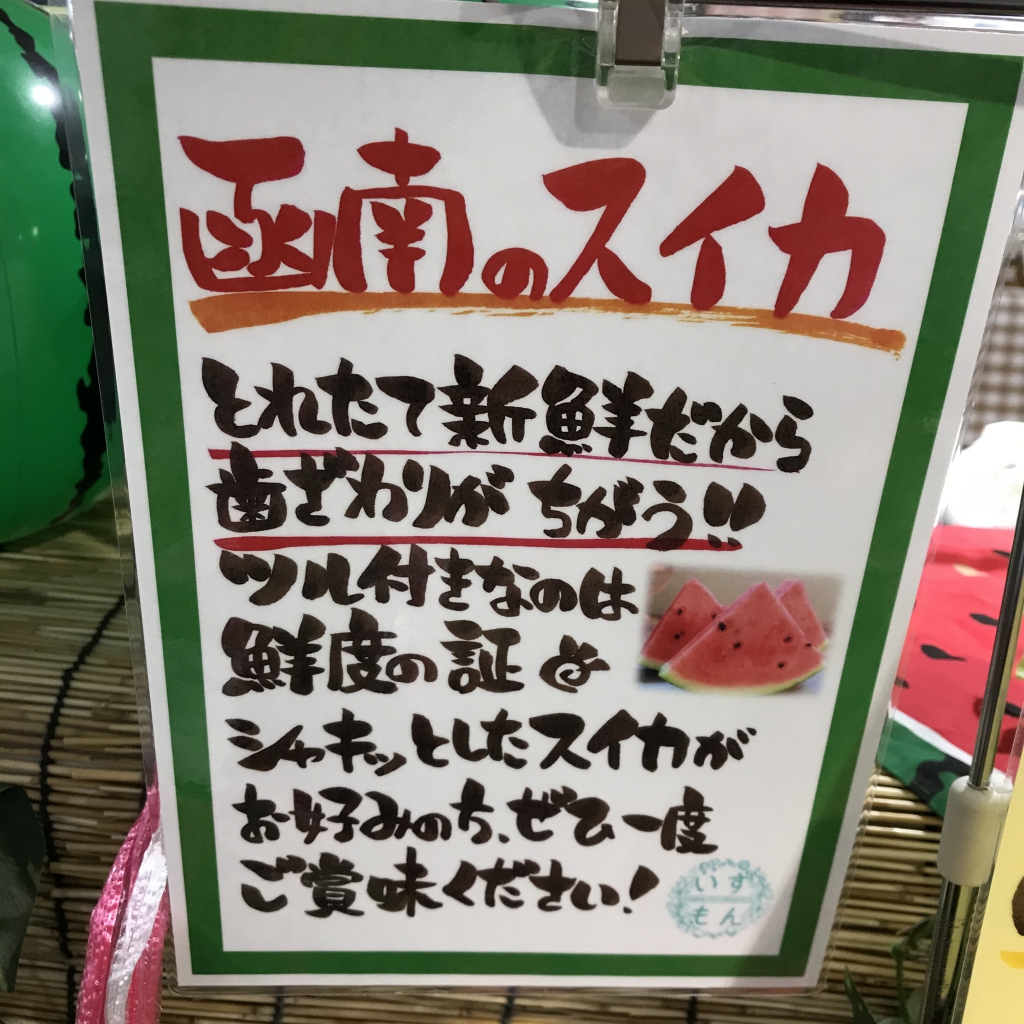 函南のスイカ
とれたて新鮮だから
歯ざわりが ちがう!!
ツル付きなのは
鮮度の証
シャキッとしたスイカが
お好みの方、ぜひ一度
ご賞味ください!
いず
もん